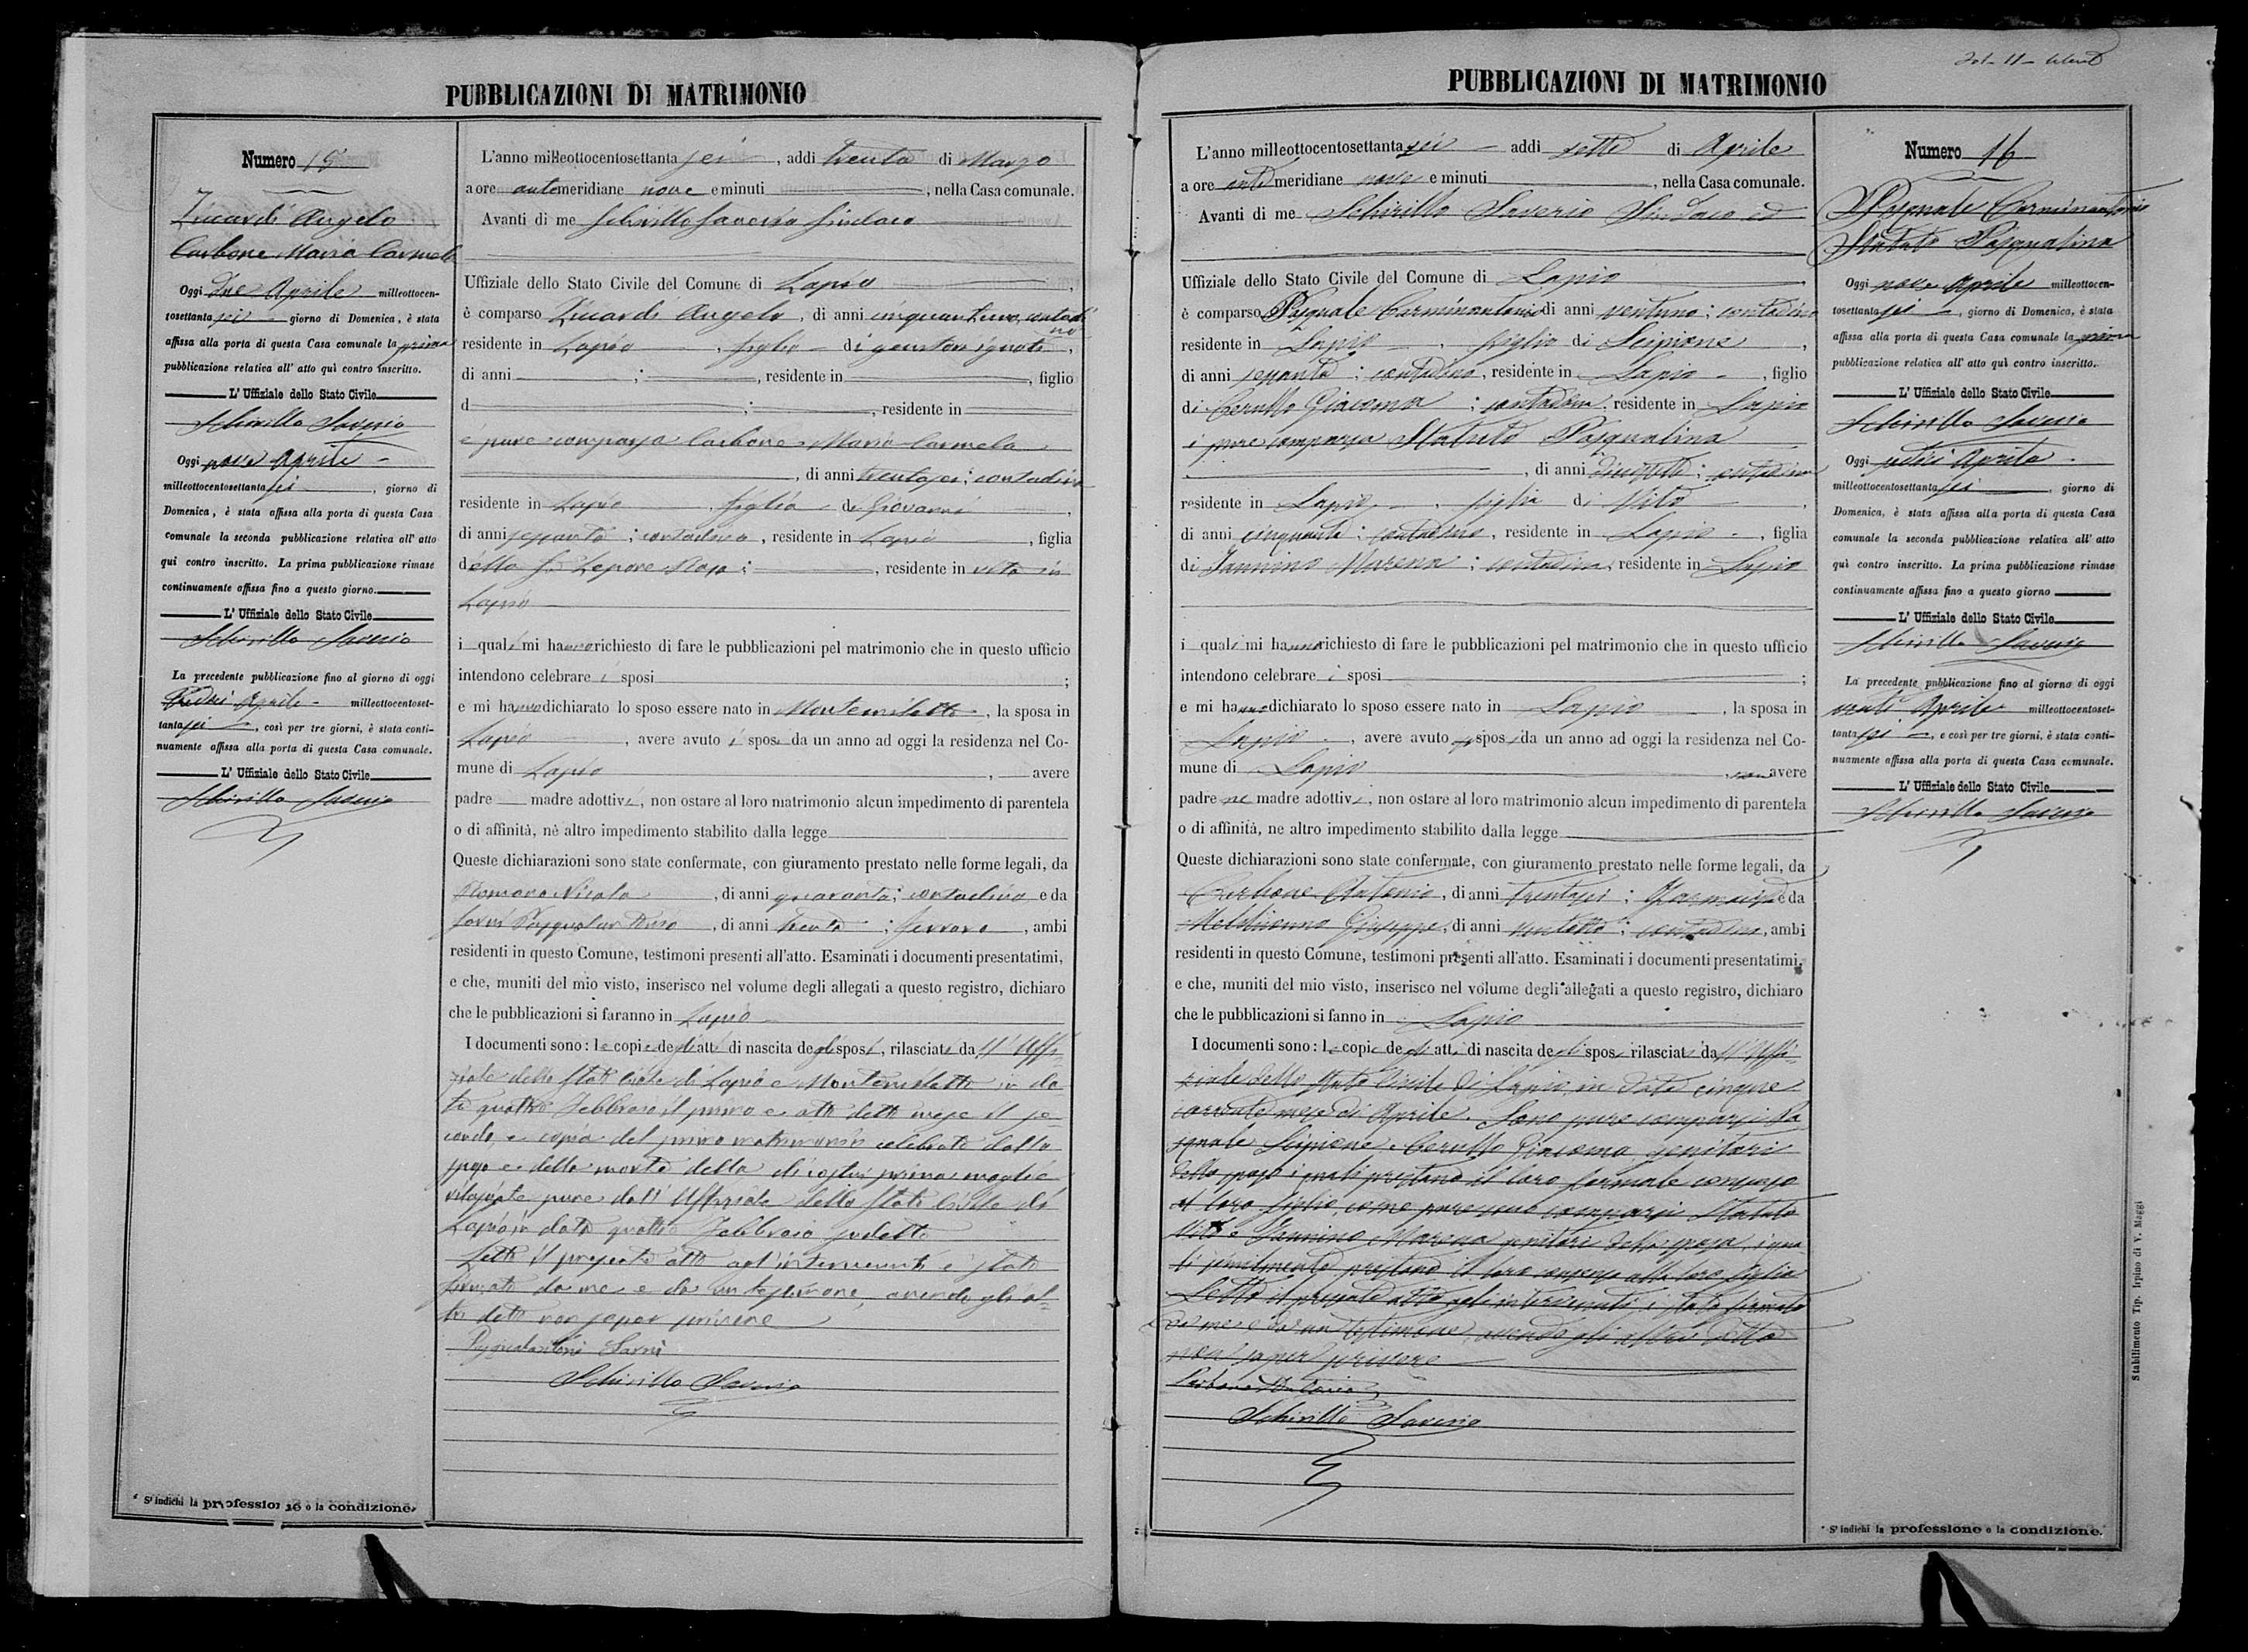 PUBBLICAZIONI DI MATRIMONIO
Numero 15
Zuccardi Angelo
Carbone Maria Carmela
Oggi due Aprile milleottocen-
tosettanta sei giorno di Domenica, è stata
affissa alla porta di questa Casa comunale la prima
pubblicazione relativa all' atto quì contro inscritto.
L' Uffiziale dello Stato Civile
Schirillo Saverio
Oggi nove Aprile
milleottocentosettanta sei, giorno di
Domenica, è stata affissa alla porta di questa Casa
comunale la seconda pubblicazione relativa all' atto
quì contro inscritto. La prima pubblicazione rimase
continuamente affissa fino a questo giorno.
L' Uffiziale dello Stato Civile
Schirillo Saverio
La precedente pubblicazione fino al giorno di oggi
Aprile milleottocentoset-
tanta sei, così per tre giorni, è stata conti-
nuamente affissa alla porta di questa Casa comunale.
L' Uffiziale dello Stato Civile
Schirillo Saverio
* S' indichi la professione o la condizione.
L'anno milleottocentosettanta sei, addi trenta di Marzo
a ore antemeridiane nove e minuti, nella Casa comunale.
Avanti di me Schirillo Saverio Sindaco
Uffiziale dello Stato Civile del Comune di Lapio,
è comparso Zuccardi Angelo, di anni cinquantuno, contadi
no
residente in Lapio, figlio di genitori ignoti,
di anni ; , residente in , figlio
d ; , residente in
è pure comparsa Carbone Maria Carmela
, di anni trentasei; contadina
residente in Lapio, figlia di Giovanni,
di anni sessanta; contadino, residente in Lapio, figlia
della fu Lepore Rosa; , residente in vita in
Lapio
i quali mi hanno richiesto di fare le pubblicazioni pel matrimonio che in questo ufficio
intendono celebrare i sposi ;
e mi hanno dichiarato lo sposo essere nato in Montemiletto, la sposa in
Lapio, avere avuto i sposi da un anno ad oggi la residenza nel Co-
mune di Lapio, avere
padre madre adottivi, non ostare al loro matrimonio alcun impedimento di parentela
o di affinità, nè altro impedimento stabilito dalla legge
Queste dichiarazioni sono state confermate, con giuramento prestato nelle forme legali, da
Romano Nicola, di anni quaranta; contadino e da
Sarni, di anni trenta; ferraro, ambi
residenti in questo Comune, testimoni presenti all'atto. Esaminati i documenti presentatimi,
e che, muniti del mio visto, inserisco nel volume degli allegati a questo registro, dichiaro
che le pubblicazioni si faranno in Lapio
I documenti sono: le copie degli atti di nascita degli sposi, rilasciate dall' Uffi-
ziale dello Stato Civile di Lapio e Montemiletto in da-
ta quattro Febbraio il primo e otto detto mese il se-
condo, e copia del primo matrimonio celebrato dallo
sposo e della morte della di costui prima moglie
rilasciate pure dall' Uffiziale dello Stato Civile di
Lapio in data quattro Febbraio sudetto
Letto il presente atto agl'intervenuti è stato
firmato da me e da un testimone, avendo gli al-
tri detto non saper scrivere
Sarni
Schirillo Saverio
PUBBLICAZIONI DI MATRIMONIO
L'anno milleottocentosettanta sei addi sette di Aprile
a ore antimeridiane nove e minuti, nella Casa comunale.
Avanti di me Schirillo Saverio Sindaco ed
Uffiziale dello Stato Civile del Comune di Lapio,
è comparso Pasquale Carminantonio di anni ventuno; contadino
residente in Lapio, figlio di Scipione,
di anni sessanta; contadino, residente in Lapio, figlio
di Cerullo Giacoma; contadina, residente in Lapio
è pure comparsa Statuto Pasqualina
, di anni diciassette; contadina
residente in Lapio, figlia di Vito,
di anni cinquanta; contadino, residente in Lapio, figlia
di Iannino Marena; contadina, residente in Lapio
i quali mi hanno richiesto di fare le pubblicazioni pel matrimonio che in questo ufficio
intendono celebrare i sposi ;
e mi hanno dichiarato lo sposo essere nato in Lapio, la sposa in
Lapio, avere avuto gli sposi da un anno ad oggi la residenza nel Co-
mune di Lapio, non avere
padre nè madre adottivi, non ostare al loro matrimonio alcun impedimento di parentela
o di affinità, ne altro impedimento stabilito dalla legge
Queste dichiarazioni sono state confermate, con giuramento prestato nelle forme legali, da
Carbone Antonio, di anni trentasei; e da
Giuseppe, di anni ventotto; contadino, ambi
residenti in questo Comune, testimoni presenti all'atto. Esaminati i documenti presentatimi,
e che, muniti del mio visto, inserisco nel volume degli allegati a questo registro, dichiaro
che le pubblicazioni si fanno in Lapio
I documenti sono: le copie degli atti di nascita degli sposi rilasciati dall'Uffi-
ziale dello Stato Civile di Lapio in data cinque
corrente mese di Aprile. Sono pure comparsi Pa
squale Scipione e Cerullo Giacoma genitori
dello sposo i quali prestano il loro formale consenso
al loro figlio, come pure sono comparsi Statuto
Vito e Iannino Marena genitori della sposa, i qua-
li similmente prestano il loro consenso alla loro figlia
Letto il presente atto agli intervenuti è stato firmato
da me e da un testimone, avendo gli altri detto
non saper scrivere
Carbone Antonio
Schirillo Saverio
Numero 16
Pasquale Carminantonio
Statuto Pasqualina
Oggi nove Aprile milleottocen-
tosettanta sei, giorno di Domenica, è stata
affissa alla porta di questa Casa comunale la prima
pubblicazione relativa all' atto quì contro inscritto.
L' Uffiziale dello Stato Civile
Schirillo Saverio
Oggi sedici Aprile
milleottocentosettanta sei, giorno di
Domenica, è stata affissa alla porta di questa Casa
comunale la seconda pubblicazione relativa all' atto
quì contro inscritto. La prima pubblicazione rimase
continuamente affissa fino a questo giorno
L' Uffiziale dello Stato Civile
Schirillo Saverio
La precedente pubblicazione fino al giorno di oggi
venti Aprile milleottocentoset-
tanta sei, e così per tre giorni, è stata conti-
nuamente affissa alla porta di questa Casa comunale.
L' Uffiziale dello Stato Civile
Schirillo Saverio
* S' indichi la professione o la condizione.
Stabilimento Tip. Irpino di V. Maggi